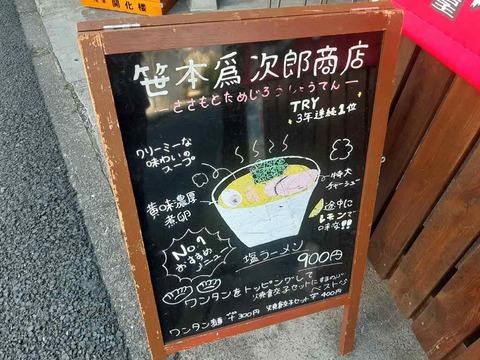 開化楼
笹本爲次郎商店
ーささもとためじろうしょうてんー
TRY
3年連続1位
クリーミーな
味わいの
スープ
黄味濃厚
煮卵
特大
チャーシュー
途中に
レモンで
味変!!
No.1
おすすめ
メニュー
塩ラーメン
900円
ワンタンをトッピングして
焼餃子セットにするのが
ベスト
ワンタン麺 +300円 焼餃子セット +400円